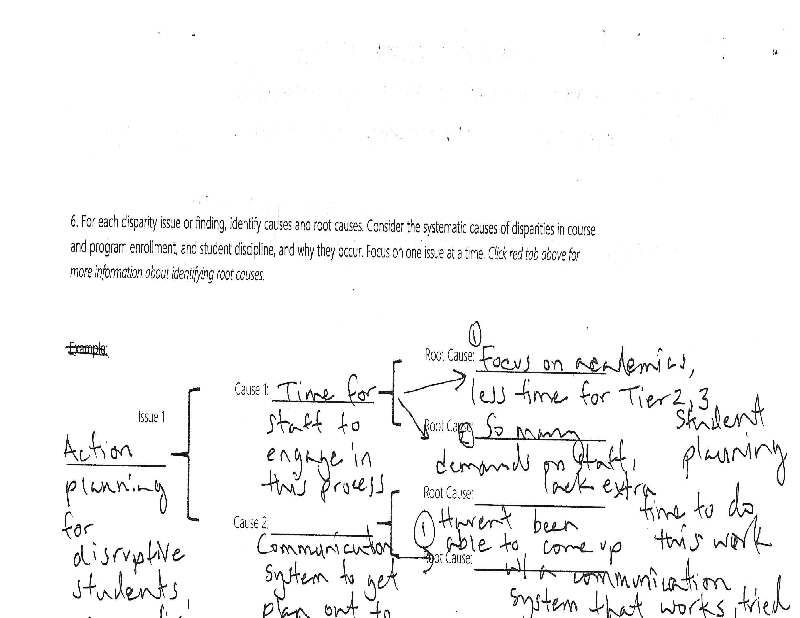 6. For each disparity issue or finding, identify causes and root causes. Consider the systematic causes of disparities in course
and program enrollment, and student discipline, and why they occur. Focus on one issue at a time. Click red tab above for
more information about identifying root causes.
Example:
Issue 1
Action
planning
for
disruptive
students
Cause 1: Time for
staff to
engage in
this process
Root Cause: ① Focus on academics,
less time for Tier 2, 3
student
planning
Root Cause: So many
demands on staff,
lack extra
time to do
this work
Cause 2:
Communication
system to get
plan out to
Root Cause:
① Haven't been
able to come up
Root Cause:
w/ a communication
system that works, tried